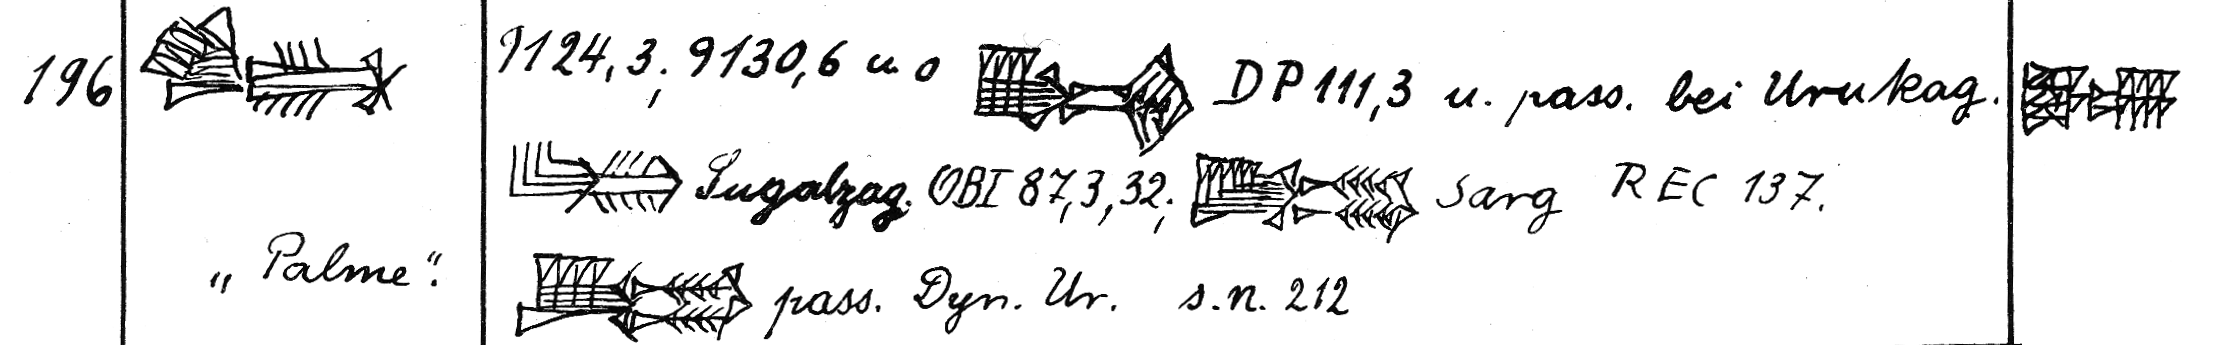 196 9124,3; 9130,6 u. o DP 111,3 u. pass. bei Urukag.
Lugalzag. OBI 87,3,32; Sarg REC 137.
„Palme“. pass. Dyn. Ur. s.n. 212